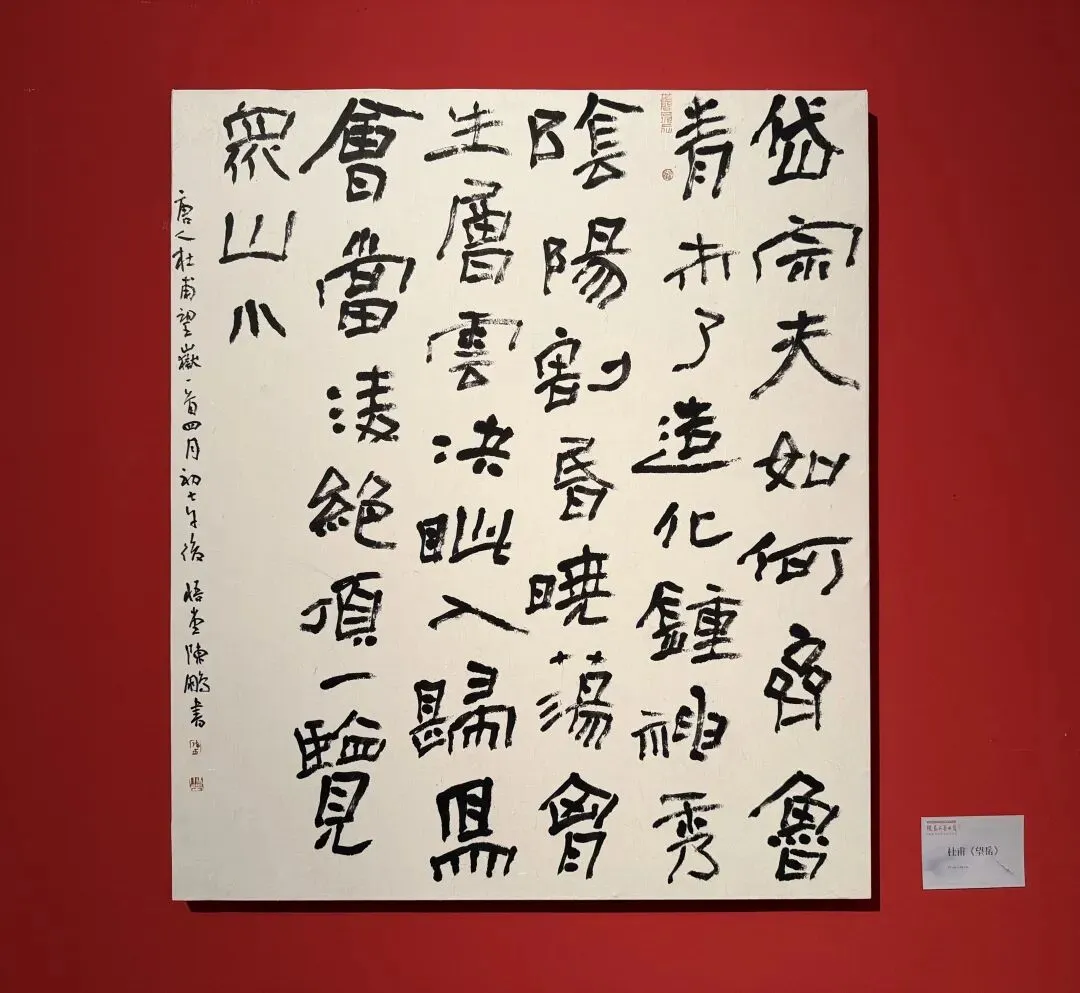 岱宗夫如何齊魯
青未了造化鍾神秀
陰陽割昏曉蕩胷
生層雲决眦入歸鳥
會當凌絕頂一覽
眾山小
唐人杜甫望嶽一首四月初七午後悟堂陳鵬書
杜甫《望岳》